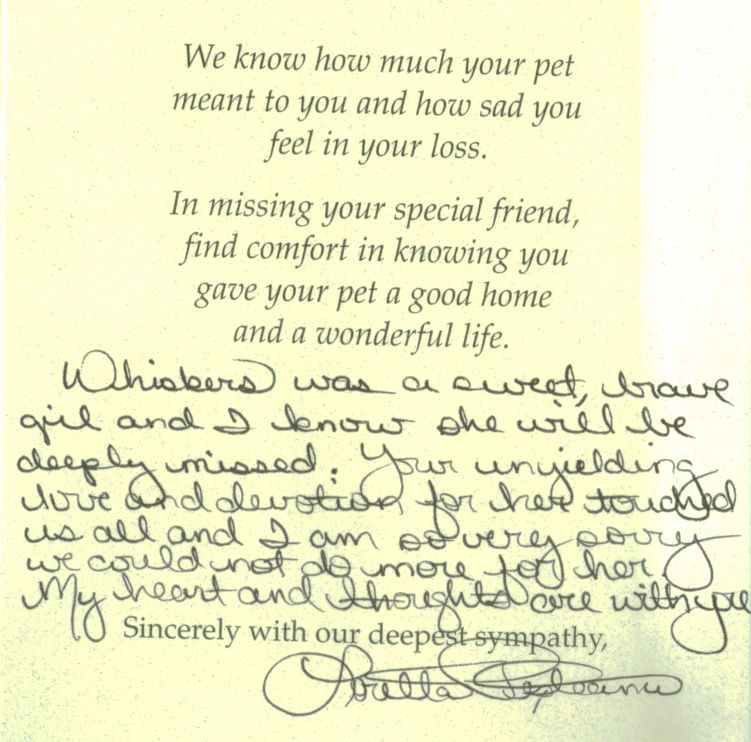 We know how much your pet
meant to you and how sad you
feel in your loss.
In missing your special friend,
find comfort in knowing you
gave your pet a good home
and a wonderful life.
Whiskers was a sweet, brave
girl and I know she will be
deeply missed. Your unyielding
love and devotion for her touched
us all and I am so very sorry
we could not do more for her.
My heart and thoughts are with you
Sincerely with our deepest sympathy,
Loretta